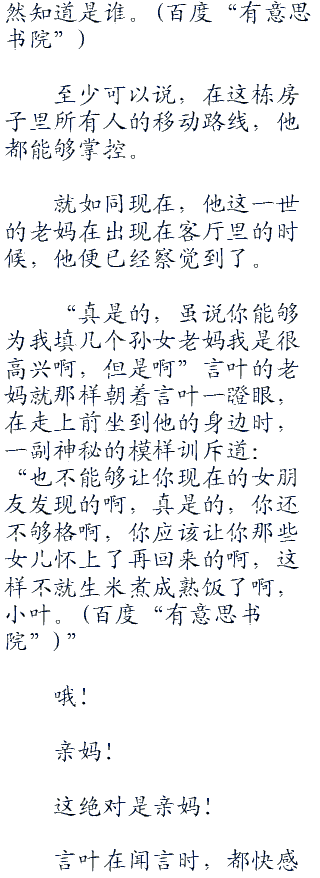 然知道是谁。(百度“有意思
书院”)
至少可以说，在这栋房
子里所有人的移动路线，他
都能够掌控。
就如同现在，他这一世
的老妈在出现在客厅里的时
候，他便已经察觉到了。
“真是的，虽说你能够
为我填几个孙女老妈我是很
高兴啊，但是啊”言叶的老
妈就那样朝着言叶一瞪眼，
在走上前坐到他的身边时，
一副神秘的模样训斥道：
“也不能够让你现在的女朋
友发现的啊，真是的，你还
不够格啊，你应该让你那些
女儿怀上了再回来的啊，这
样不就生米煮成熟饭了啊，
小叶。(百度“有意思书
院”)”
哦！
亲妈！
这绝对是亲妈！
言叶在闻言时，都快感